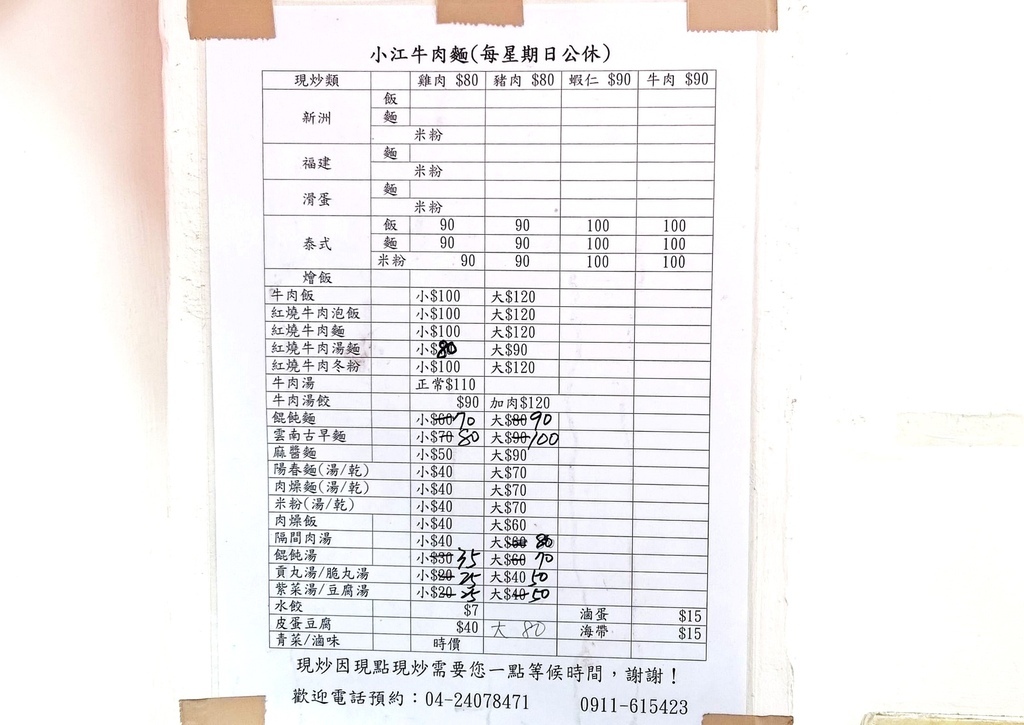 小江牛肉麵(每星期日公休)
現炒類 雞肉 $80 豬肉 $80 蝦仁 $90 牛肉 $90
新洲 飯
麵
米粉
福建 麵
米粉
滑蛋 麵
米粉
泰式 飯 90 90 100 100
麵 90 90 100 100
米粉 90 90 100 100
燴飯
牛肉飯 小$100 大$120
紅燒牛肉泡飯 小$100 大$120
紅燒牛肉麵 小$100 大$120
紅燒牛肉湯麵 小$80 大$90
紅燒牛肉冬粉 小$100 大$120
牛肉湯 正常$110
牛肉湯餃 $90 加肉$120
餛飩麵 小$60 70 大$80 90
雲南古早麵 小$70 80 大$90 100
麻醬麵 小$50 大$90
陽春麵(湯/乾) 小$40 大$70
肉燥麵(湯/乾) 小$40 大$70
米粉(湯/乾) 小$40 大$70
肉燥飯 小$40 大$60
隔間肉湯 小$40 大$60 80
餛飩湯 小$30 35 大$60 70
貢丸湯/脆丸湯 小$20 25 大$40 50
紫菜湯/豆腐湯 小$20 25 大$40 50
水餃 $7 滷蛋 $15
皮蛋豆腐 $40 大 80 海帶 $15
青菜/滷味 時價
現炒因現點現炒需要您一點等候時間，謝謝！
歡迎電話預約：04-24078471 0911-615423